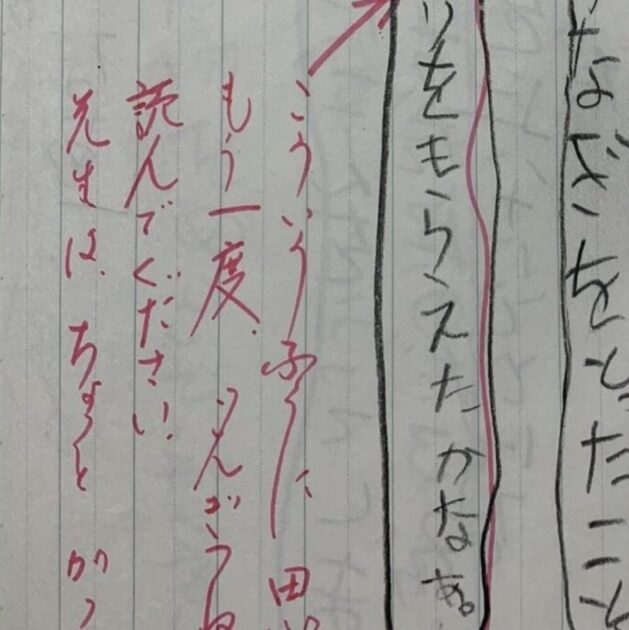 などをとったこと
りをもらえたかなぁ。
こういうふうに、田
もう一度、りんごうね
読んでください。
先生は、ちょっとがっ